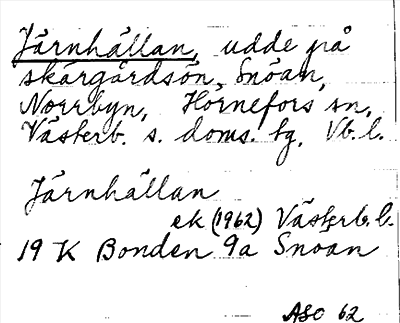 Järnhällan, udde på
skärgårdsön, Snöan,
Norrbyn, Hörnefors sn,
Västerb. s. doms. tg, Vb. l.
Järnhällan
ek (1962) Västerb. l.
19 K Bonden 9a Snoan
ASO 62